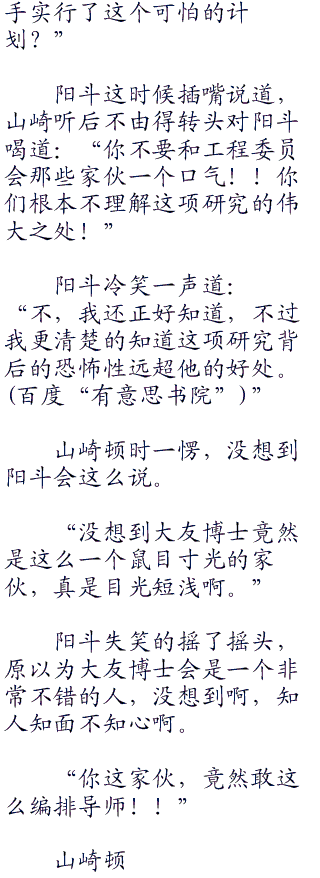 手实行了这个可怕的计
划？”
阳斗这时候插嘴说道，
山崎听后不由得转头对阳斗
喝道：“你不要和工程委员
会那些家伙一个口气！！你
们根本不理解这项研究的伟
大之处！”
阳斗冷笑一声道：
“不，我还正好知道，不过
我更清楚的知道这项研究背
后的恐怖性远超他的好处。
(百度“有意思书院”)”
山崎顿时一愣，没想到
阳斗会这么说。
“没想到大友博士竟然
是这么一个鼠目寸光的家
伙，真是目光短浅啊。”
阳斗失笑的摇了摇头，
原以为大友博士会是一个非
常不错的人，没想到啊，知
人知面不知心啊。
“你这家伙，竟然敢这
么编排导师！！”
山崎顿